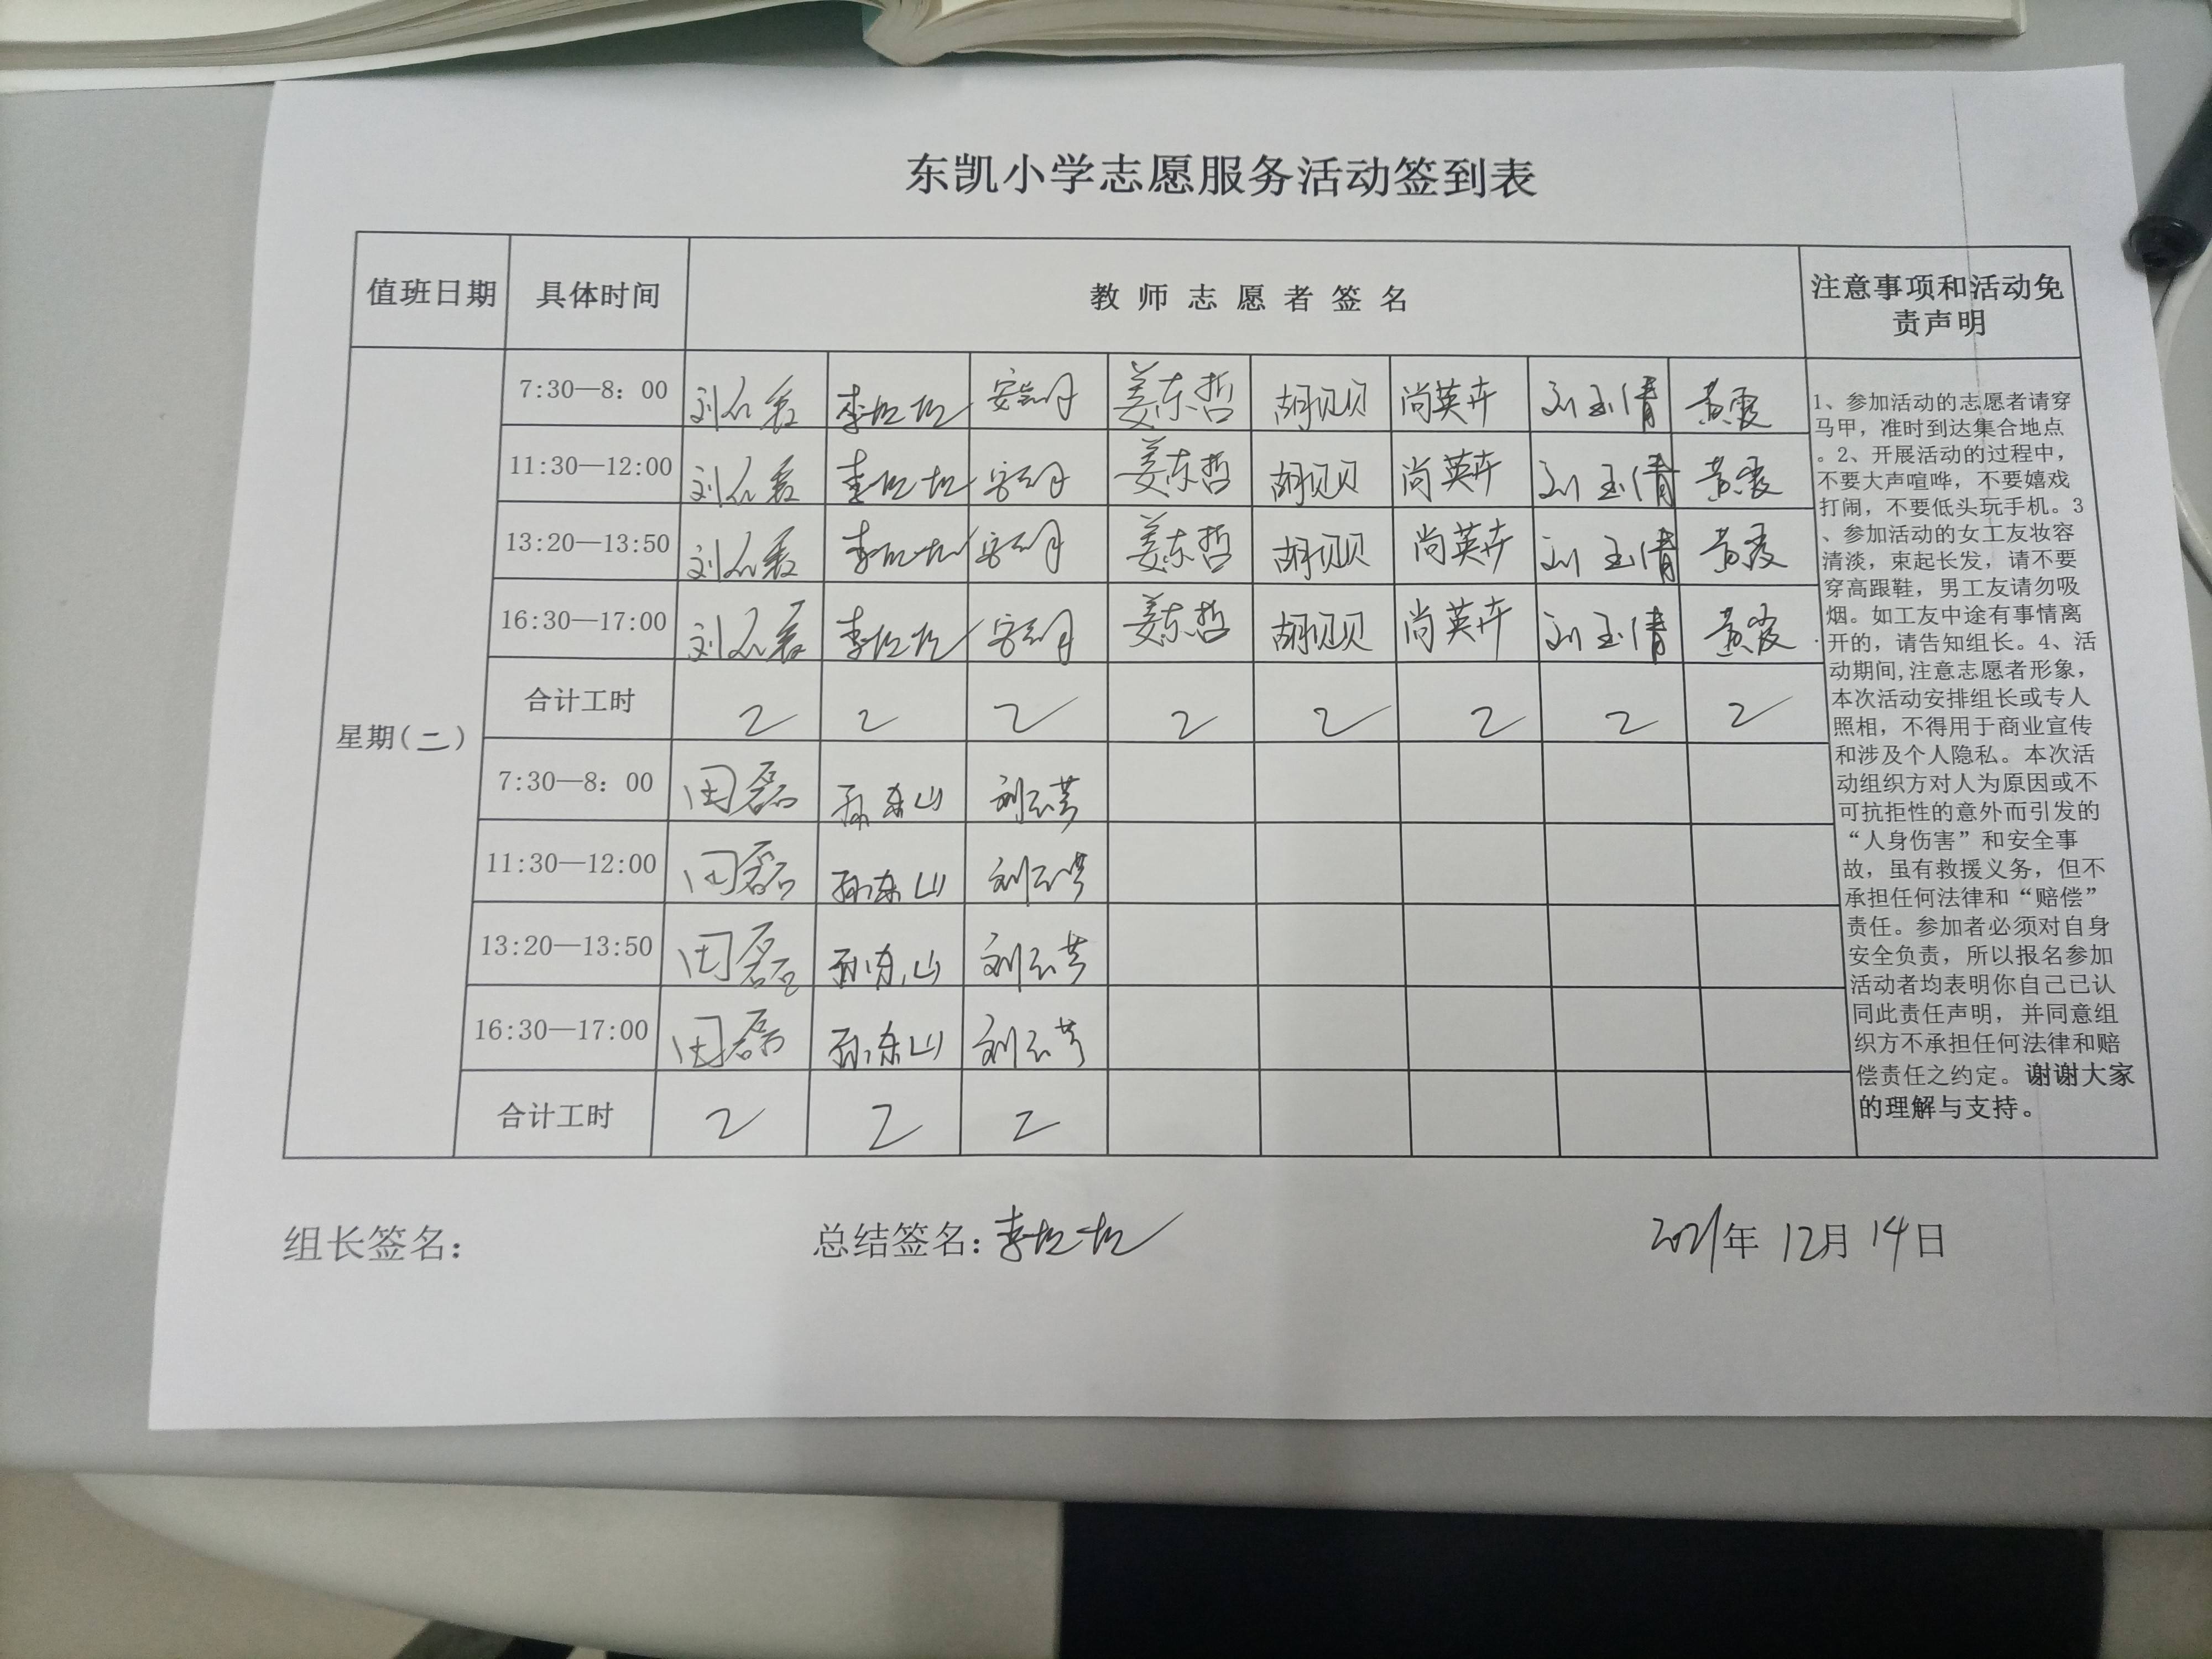 东凯小学志愿服务活动签到表
值班日期 具体时间 教师志愿者签名 注意事项和活动免
责声明
星期(二)
7:30—8：00 姜东哲 胡贝贝 尚英卉 刘玉倩 黄霞
11:30—12:00 姜东哲 胡贝贝 尚英卉 刘玉倩 黄霞
13:20—13:50 姜东哲 胡贝贝 尚英卉 刘玉倩 黄霞
16:30—17:00 姜东哲 胡贝贝 尚英卉 刘玉倩 黄霞
合计工时 2 2 2 2 2 2 2 2
7:30—8：00 田磊 孙东山
11:30—12:00 田磊 孙东山
13:20—13:50 田磊 孙东山
16:30—17:00 田磊 孙东山
合计工时 2 2 2
1、参加活动的志愿者请穿
马甲，准时到达集合地点
。2、开展活动的过程中，
不要大声喧哗，不要嬉戏
打闹，不要低头玩手机。3
、参加活动的女工友妆容
清淡，束起长发，请不要
穿高跟鞋，男工友请勿吸
烟。如工友中途有事情离
开的，请告知组长。4、活
动期间,注意志愿者形象，
本次活动安排组长或专人
照相，不得用于商业宣传
和涉及个人隐私。本次活
动组织方对人为原因或不
可抗拒性的意外而引发的
“人身伤害”和安全事
故，虽有救援义务，但不
承担任何法律和“赔偿”
责任。参加者必须对自身
安全负责，所以报名参加
活动者均表明你自己已认
同此责任声明，并同意组
织方不承担任何法律和赔
偿责任之约定。谢谢大家
的理解与支持。
组长签名： 总结签名： 2021年 12月 14日